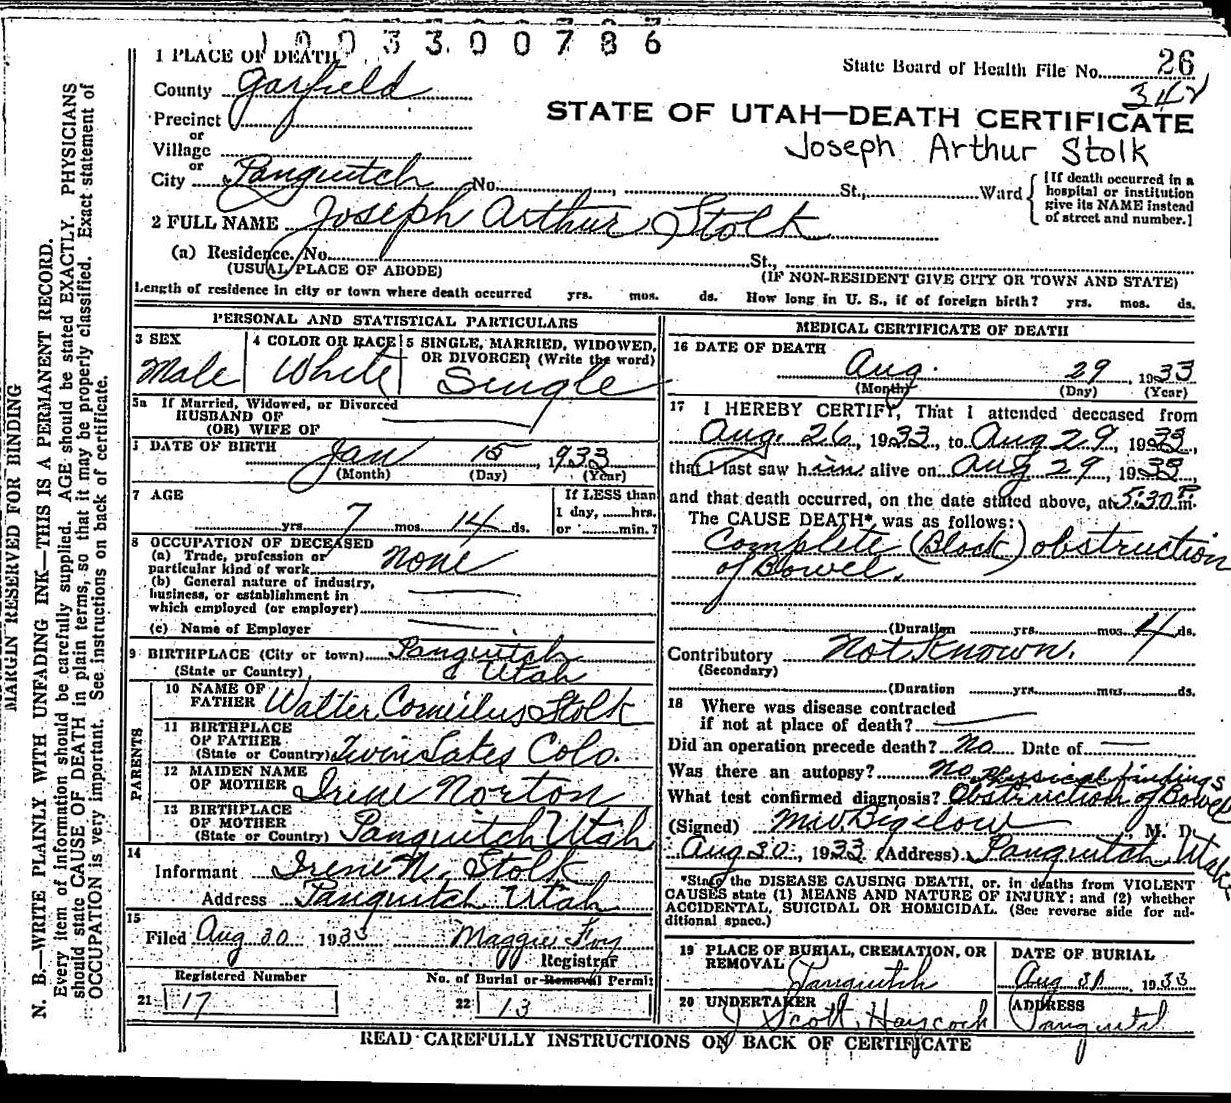 1 0 0 3 3 0 0 7 8 6
1 PLACE OF DEATH
State Board of Health File No. 26
342
County Garfield
STATE OF UTAH—DEATH CERTIFICATE
Precinct
or
Joseph Arthur Stolk
Village
or
City Panguitch No. St., Ward
[If death occurred in a
hospital or institution
give its NAME instead
of street and number.]
2 FULL NAME Joseph Arthur Stolk
(a) Residence. No. St.,
(USUAL PLACE OF ABODE) (IF NON-RESIDENT GIVE CITY OR TOWN AND STATE)
Length of residence in city or town where death occurred yrs. mos. ds. How long in U. S., if of foreign birth? yrs. mos. ds.
PERSONAL AND STATISTICAL PARTICULARS
3 SEX 4 COLOR OR RACE 5 SINGLE, MARRIED, WIDOWED,
OR DIVORCED (Write the word)
Male White Single
5a If Married, Widowed, or Divorced
HUSBAND OF
(OR) WIFE OF
DATE OF BIRTH Jan 15, 933
(Month) (Day) (Year)
7 AGE If LESS than
1 day, hrs.
yrs. 7 mos. 14 ds. or min.?
8 OCCUPATION OF DECEASED
(a) Trade, profession or
particular kind of work none
(b) General nature of industry,
business, or establishment in
which employed (or employer)
(c) Name of Employer
9 BIRTHPLACE (City or town) Panguitch
(State or Country) Utah
PARENTS
10 NAME OF
FATHER Walter Corneilus Stolk
11 BIRTHPLACE
OF FATHER
(State or Country) Twin Lakes Colo.
12 MAIDEN NAME
OF MOTHER Irene Norton
13 BIRTHPLACE
OF MOTHER
(State or Country) Panguitch Utah
14
Informant Irene N. Stolk
Address Panguitch Utah
15
Filed Aug 30 1933 Maggie Foy
Registrar
Registered Number No. of Burial or Removal Permit
21 17 22 13
MEDICAL CERTIFICATE OF DEATH
16 DATE OF DEATH
Aug. 29, 1933
(Month) (Day) (Year)
17 I HEREBY CERTIFY, That I attended deceased from
Aug. 26, 1933, to Aug 29, 1933,
that I last saw him alive on Aug 29, 1933,
and that death occurred, on the date stated above, at 5:30 P m.
The CAUSE DEATH* was as follows:
Complete (Block) obstruction
of Bowel.
(Duration yrs. mos. 4 ds.
Contributory Not Known.
(Secondary)
(Duration yrs. mos. ds.
18 Where was disease contracted
if not at place of death?
Did an operation precede death? No Date of
Was there an autopsy? No. Physical findings
What test confirmed diagnosis? Obstruction of Bowel
(Signed) M.W. Bigelow, M. D.
Aug 30, 1933 (Address) Panguitch, Utah
*State the DISEASE CAUSING DEATH, or, in deaths from VIOLENT
CAUSES state (1) MEANS AND NATURE OF INJURY; and (2) whether
ACCIDENTAL, SUICIDAL OR HOMICIDAL. (See reverse side for ad-
ditional space.)
19 PLACE OF BURIAL, CREMATION, OR
REMOVAL Panguitch
DATE OF BURIAL
Aug 31, 1933
20 UNDERTAKER
J Scott Haycock
ADDRESS
Panguitch
READ CAREFULLY INSTRUCTIONS ON BACK OF CERTIFICATE
MARGIN RESERVED FOR BINDING
N. B.—WRITE PLAINLY WITH UNFADING INK—THIS IS A PERMANENT RECORD.
Every item of information should be carefully supplied. AGE should be stated EXACTLY. PHYSICIANS
should state CAUSE OF DEATH in plain terms, so that it may be properly classified. Exact statement of
OCCUPATION is very important. See instructions on back of certificate.